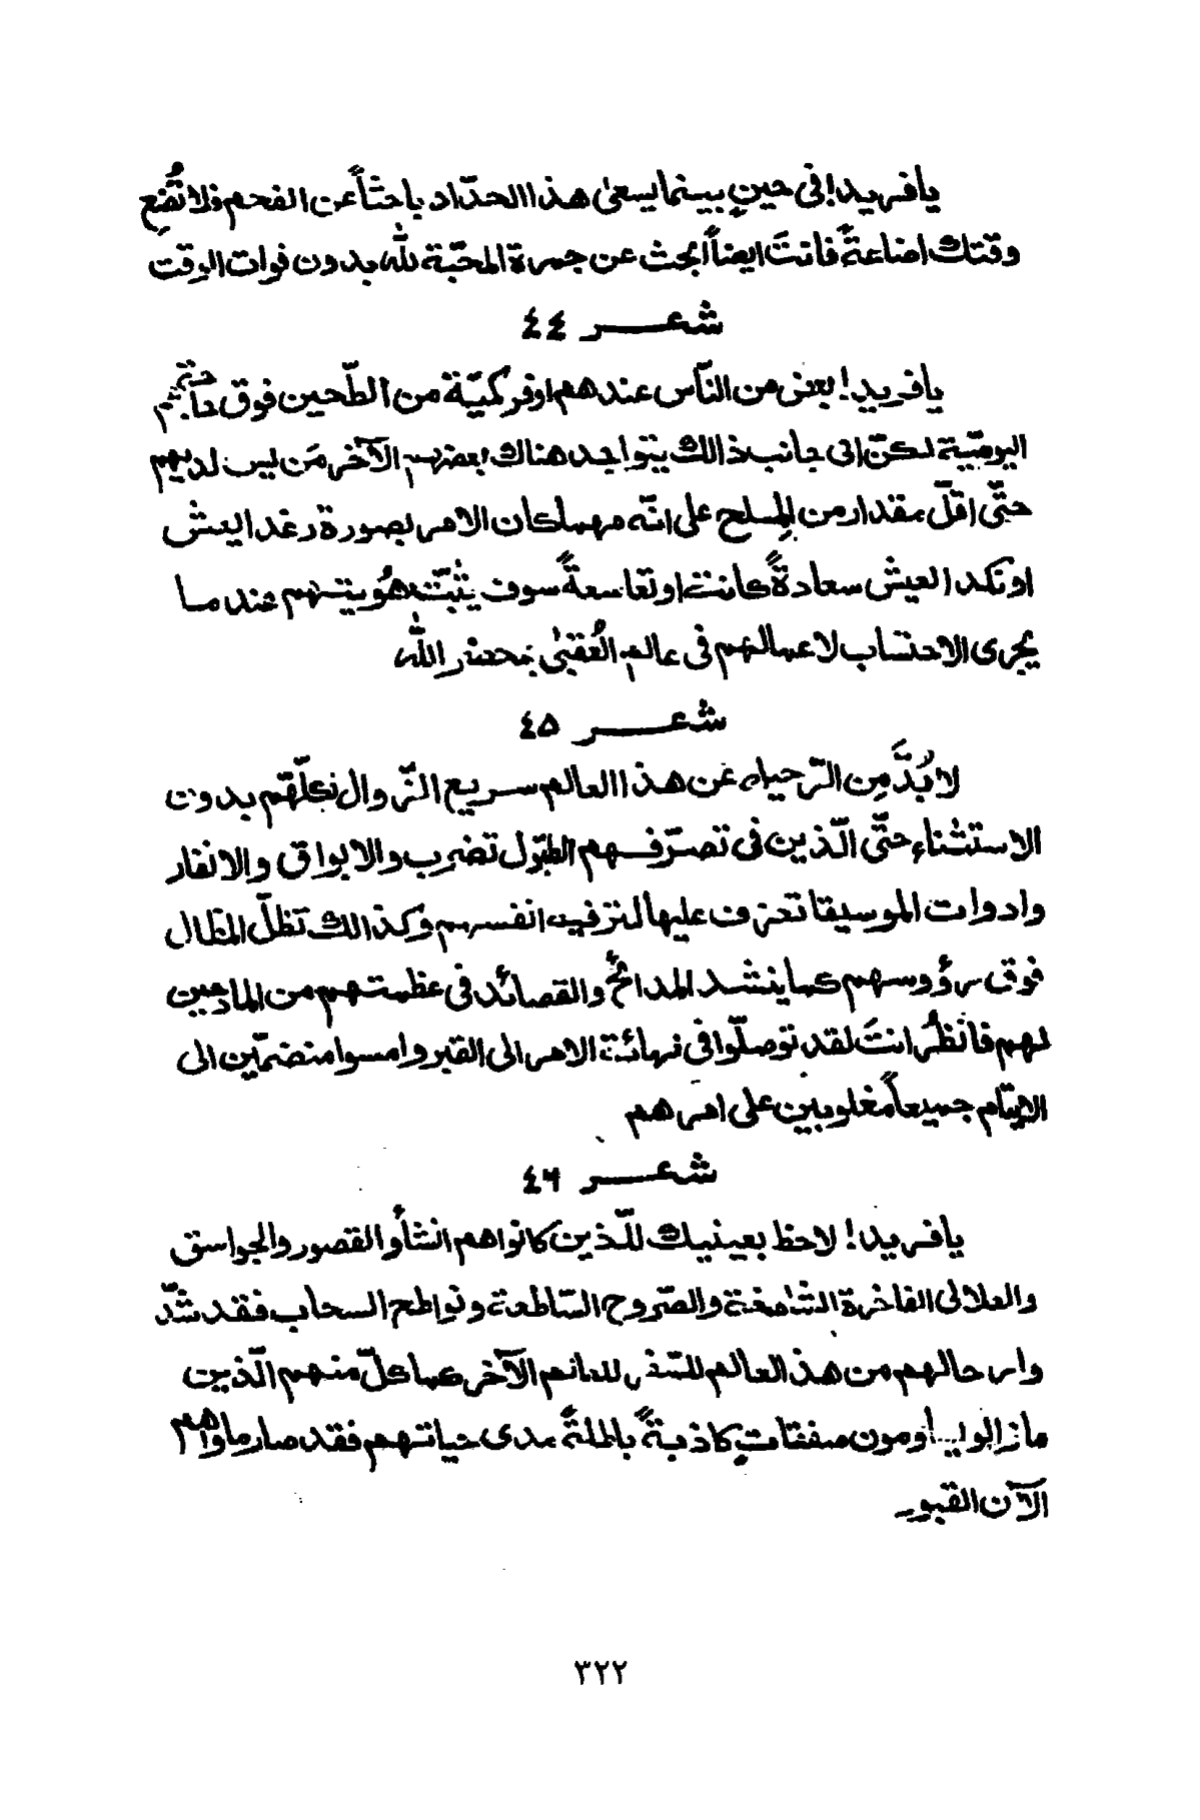 يا فريد! فى حينٍ بينما يسعىٰ هذا الحدّاد باحثاً عن الفحم فلا تُضِع
وقتك اضاعةً فانتَ ايضاً ابحث عن جمرة المحبّة لله بدون فوات الوقت
شعر ٤٤
يا فريد! بعض من النّاس عندهم اوفر كميّة من الطّحين فوق حاجتهم
اليوميّة لكنّ الى جانب ذالك يتواجد هناك بعضهم الآخر مَن ليس لديهم
حتّى اقلّ مقدار من المِلح على انّه مهما كان الامر بصورة رغد العيش
او نكد العيش سعادةً كانت او تعاسةً سوف يثبّت هُويتهم عندما
يجرى الاحتساب لاعمالهم فى عالم العُقبىٰ بمحضر الله
شعر ٤٥
لا بُدَّ مِن الرّحيل عن هذا العالم سريع الزّوال لكلّهم بدون
الاستثناء حتّى الّذين فى تصرّفهم الطبول تضرب والابواق والانفار
وادوات الموسيقا تعزف عليها لترفيه انفسهم وكذالك تظلّ المظال
فوق رؤوسهم كما ينشد المدائح والقصائد فى عظمتهم من المادحين
لهم فانظُر انتَ لقد توصلّوا فى نهائة الامر الى القبر وامسوا منضمّين الى
الايتام جميعاً مغلوبين على امرهم
شعر ٤٦
يا فريد! لاحظ بعينيك للّذين كانوا هم انشأو القصور والجواسق
والعلالى الفاخرة الشامخة والصّروح السّاطعة ونواطح السحاب فقد شدّ
وا رحالهم من هذ العالم للسّفر للعالم الآخر كما كلّ منهم الّذين
ما زالوا صفقات كاذبةً باطلةً مدى حياتهم فقد صار ماواهم
الآن القبور
٣٢٢